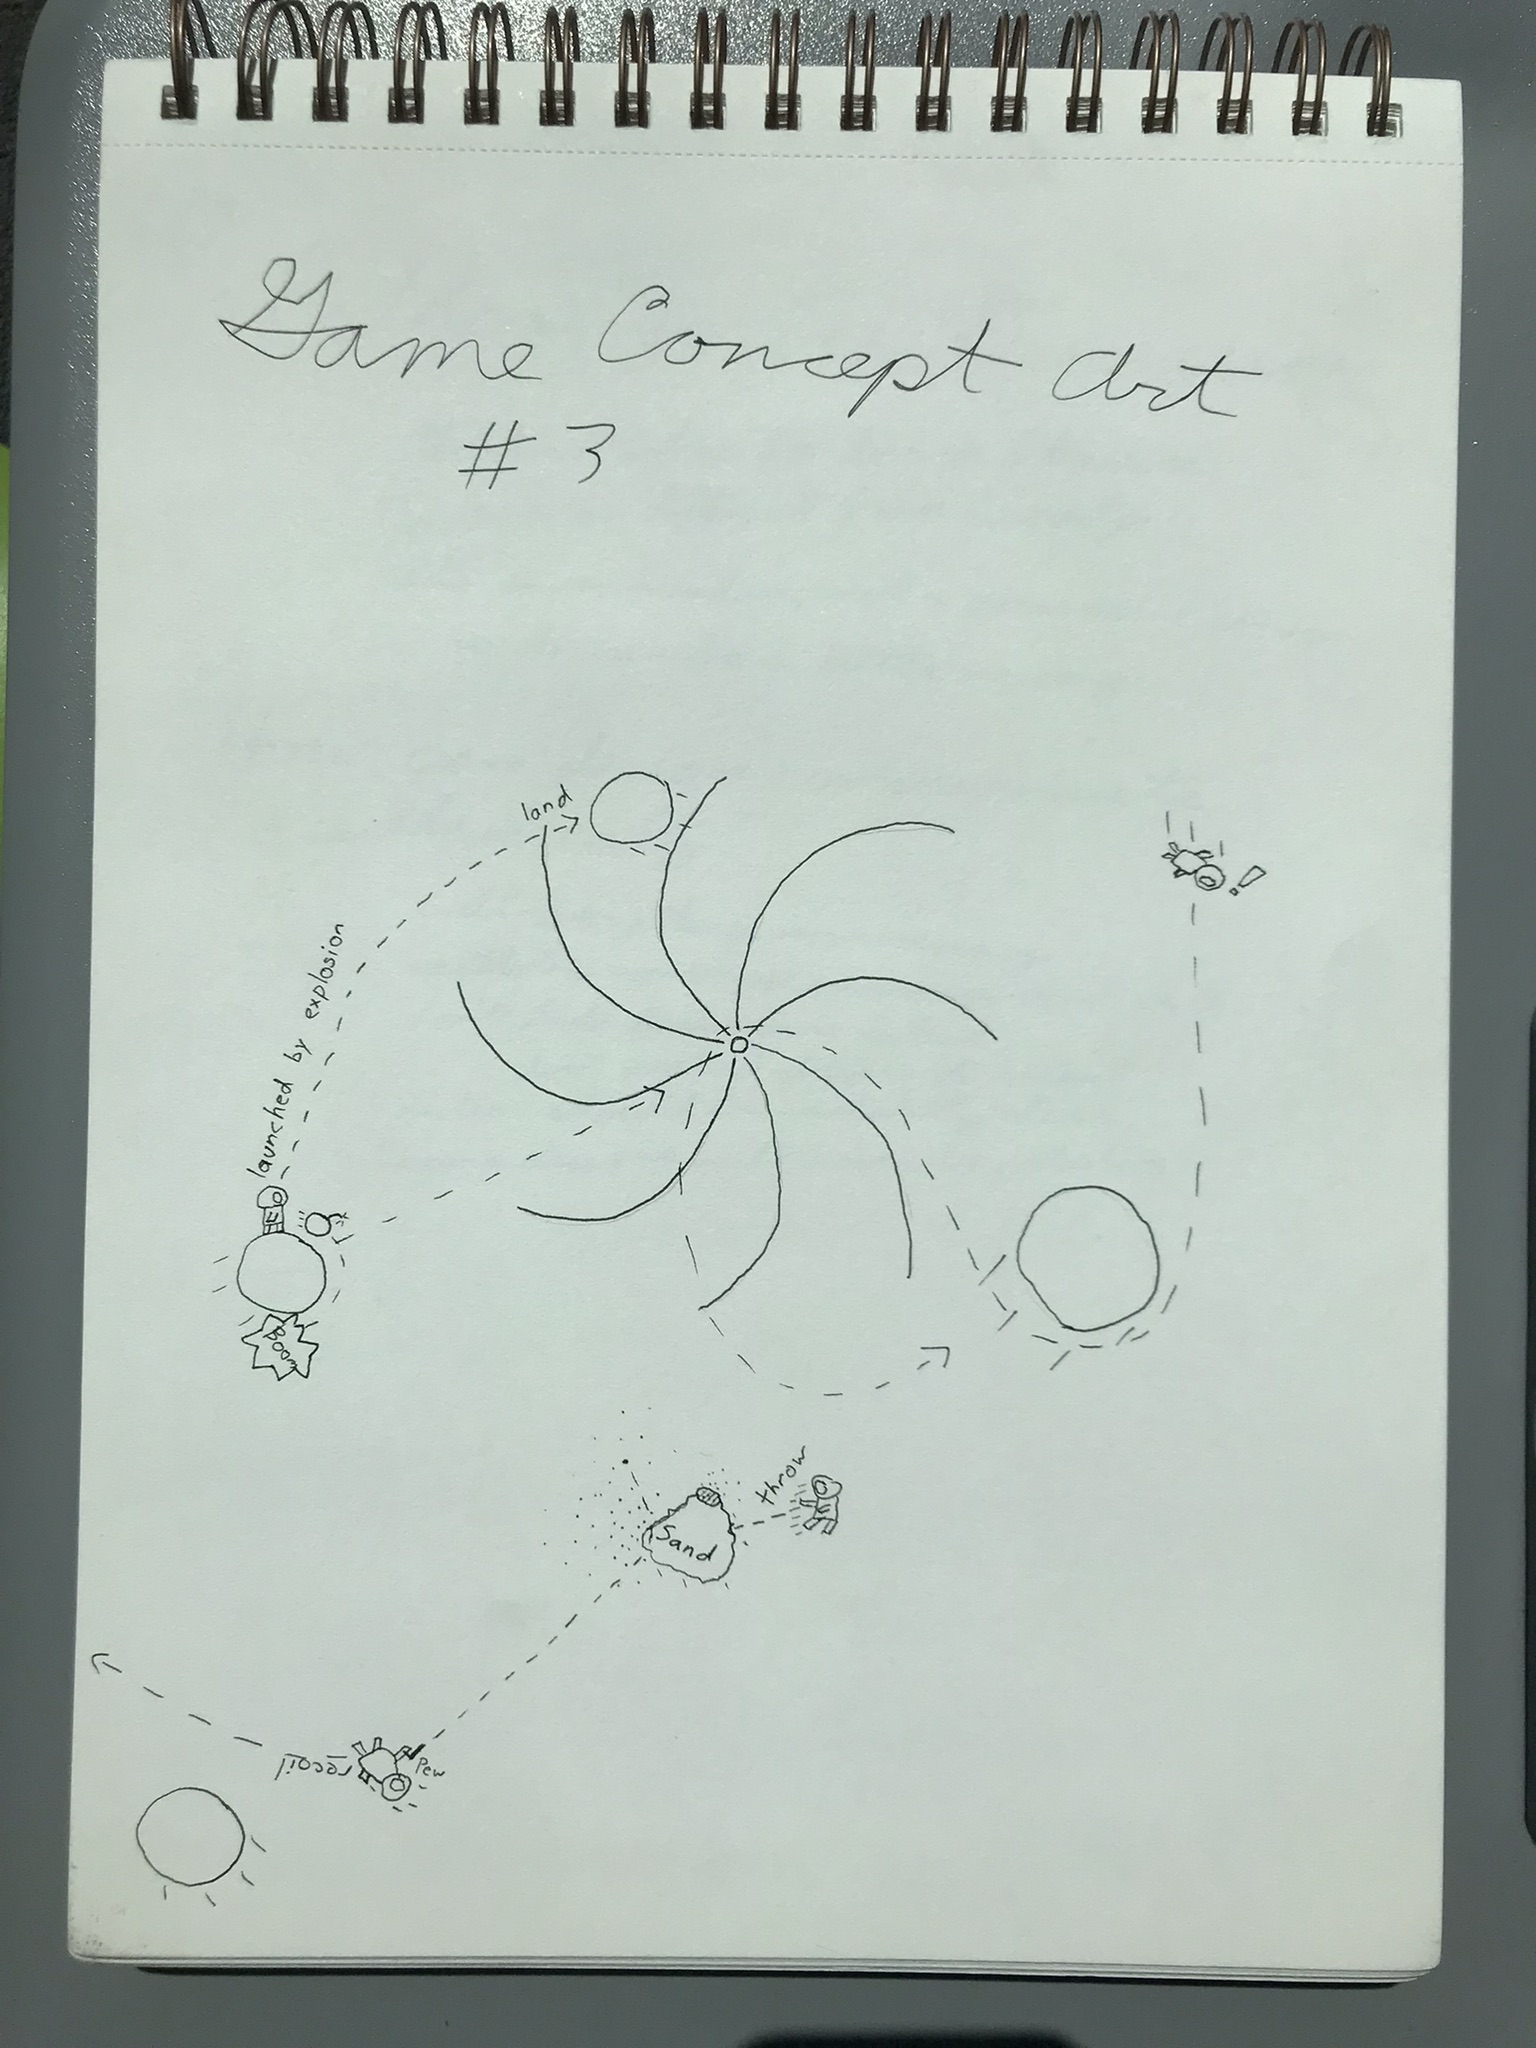 Game Concept Art
#3
land
launched by explosion
!
BOOM
throw
Sand
recoil
Pew